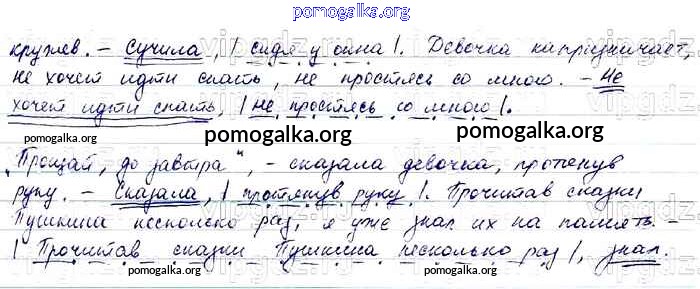 pomogalka.org
кружев. – Сучила, | сидя у окна |. Девочка капризничает,
не хочет идти спать, не простясь со мною. – Не
хочет идти спать, | не простясь со мною |.
pomogalka.org pomogalka.org pomogalka.org
„Прощай, до завтра“, – сказала девочка, протянув
руку. – Сказала, | протянув руку |. Прочитав сказки
pomogalka.org
Пушкина несколько раз, я уже знал их на память. –
| Прочитав сказки Пушкина несколько раз |, знал.
pomogalka.org pomogalka.org